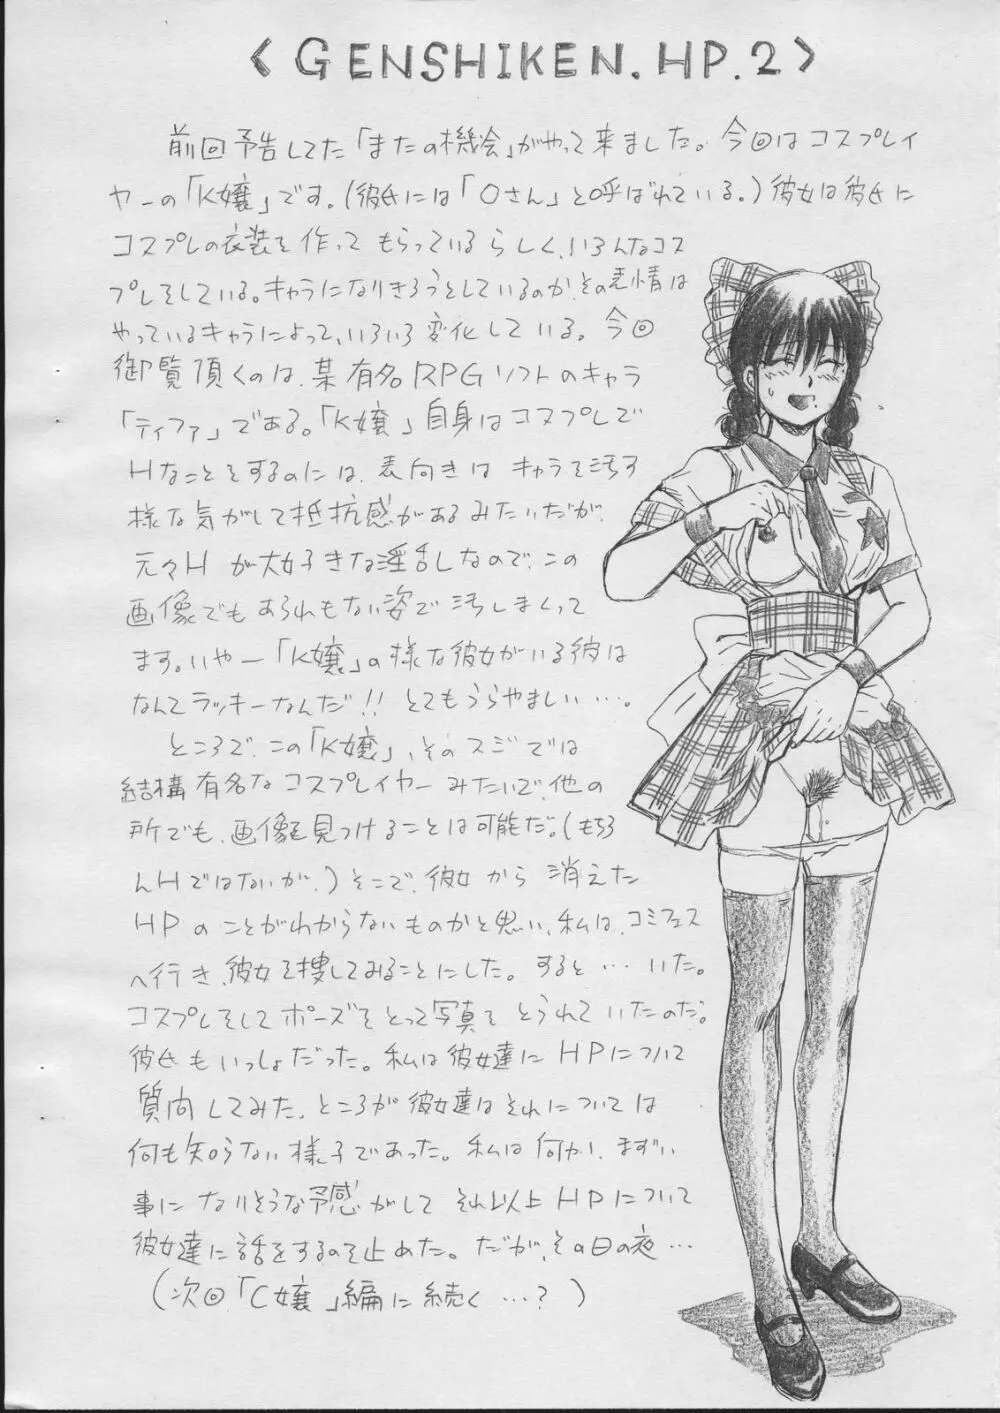 < GENSHIKEN.HP.2 >
前回予告してた「またの機会」がやって来ました。今回はコスプレイ
ヤーの「K嬢」です。(彼氏には「Oさん」と呼ばれている。)彼女は彼氏に
コスプレの衣装を作ってもらっているらしく、いろんなコス
プレをしている。キャラになりきろうとしているのか、その表情は
やっているキャラによって、いろいろ変化している。今回
御覧頂くのは、某有名RPGソフトのキャラ
「ティファ」である。「K嬢」自身はコスプレで
Hなことをするのには、表向きはキャラを汚す
様な気がして抵抗感があるみたいだが、
元々Hが大好きな淫乱しなので、この
画像でもあられもない姿で汚しまくって
ます。いやー「K嬢」の様な彼女がいる彼は
なんてラッキーなんだ!!とてもうらやましい…。
ところで、この「K嬢」、そのスジでは
結構有名なコスプレイヤーみたいで、他の
所でも、画像を見つけることは可能だ。(もちろ
んHではないが、)そこで、彼女から消えた
HPのことがわからないものかと思い、私は、コミフェス
へ行き、彼女を捜してみることにした。すると…いた。
コスプレをしてポーズをとって写真をとられていたのだ。
彼氏もいっしょだった。私は彼女達にHPについて
質問してみた、ところが彼女達はそれについては
何も知らない様子であった。私は何か、まずい
事になりそうな予感がしてそれ以上HPについて
彼女達に話をするのを止めた。だが、その日の夜…
(次回「C嬢」編に続く…?)